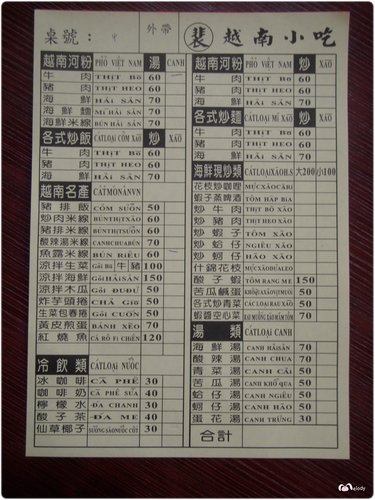 桌號：
外帶
裴 越南小吃
越南河粉 PHỞ VIỆT NAM 湯 CANH
牛肉 THỊT BÒ 60
豬肉 THỊT HEO 60
海鮮 HẢI SẢN 70
海鮮麵 MÌ HẢI SẢN 70
海鮮米線 BÚN HẢI SẢN 70
各式炒飯 CÁTLOẠI CƠM XÀO 炒 XÀO
牛肉 THỊT BÒ 60
豬肉 THỊT HEO 60
海鮮 HẢI SẢN 70
越南名產 CÁTMÓNĂNVN
豬排飯 CƠM SƯỜN 50
炒肉米線 BÚNTHỊTXÀO 60
豬排米線 BÚNTHỊT 60
酸辣湯米線 CANHCHUABÚN 70
魚露米線 BÚN RIÊU 60
涼拌生菜 GỎI BÒ 牛豬 100
涼拌海鮮 GỎI HẢI SẢN 150
涼拌木瓜 GỎI ĐU ĐỦ 50
炸芋頭捲 CHẢ GIÒ 50
生菜包春捲 GỎI CUỐN 50
黃皮煎蛋 BÁNH XÈO 70
紅燒魚 CÁ RÔ FI CHIÊN 120
冷飲類 CÁTLOẠI NƯỚC
冰咖啡 CÀ PHÊ 30
咖啡奶 CÀ PHÊ SỮA 40
檸檬水 ĐA CHANH 30
酸子茶 ĐA ME 40
仙草椰子 SƯƠNG SÁO NƯỚC CỐT 30
越南河粉 PHỞ VIỆT NAM 炒 XÀO
牛肉 THỊT BÒ 60
豬肉 THỊT HEO 60
海鮮 HẢI SẢN 70
各式炒麵 CÁTLOẠI MÌ XÀO 炒 XÀO
牛肉 THỊT BÒ 60
豬肉 THỊT HEO 60
海鮮 HẢI SẢN 70
海鮮現炒類 CÁTLOẠI XÀO H.S 大200小100
花枝炒咖哩 MỰC XÀO CÀRI
蝦子蒸啤酒 TÔM HẤP BIA
炒牛肉 THỊT BÒ XÀO
炒豬肉 THỊT HEO XÀO
炒蝦子 TÔM XÀO
炒蛤仔 NGHÊU XÀO
炒蚵仔 HÀO XÀO
什錦花枝 MỰC XÀO
酸子蝦 TÔM RANG ME 150
苦瓜鹹蛋 50
各式炒青菜 CÁC LOẠI RAU XÀO 50
蝦醬空心菜 RAU MUỐNG XÀO MẮM TÔM 70
湯類 CÁTLOẠI CANH
海鮮湯 CANH HẢI SẢN 70
酸辣湯 CANH CHUA 70
青菜湯 CANH CẢI 50
苦瓜湯 CANH KHỔ QUA 50
蛤仔湯 CANH NGHÊU 50
蚵仔湯 CANH HÀO 50
蛋花湯 CANH TRỨNG 30
合計
Melody